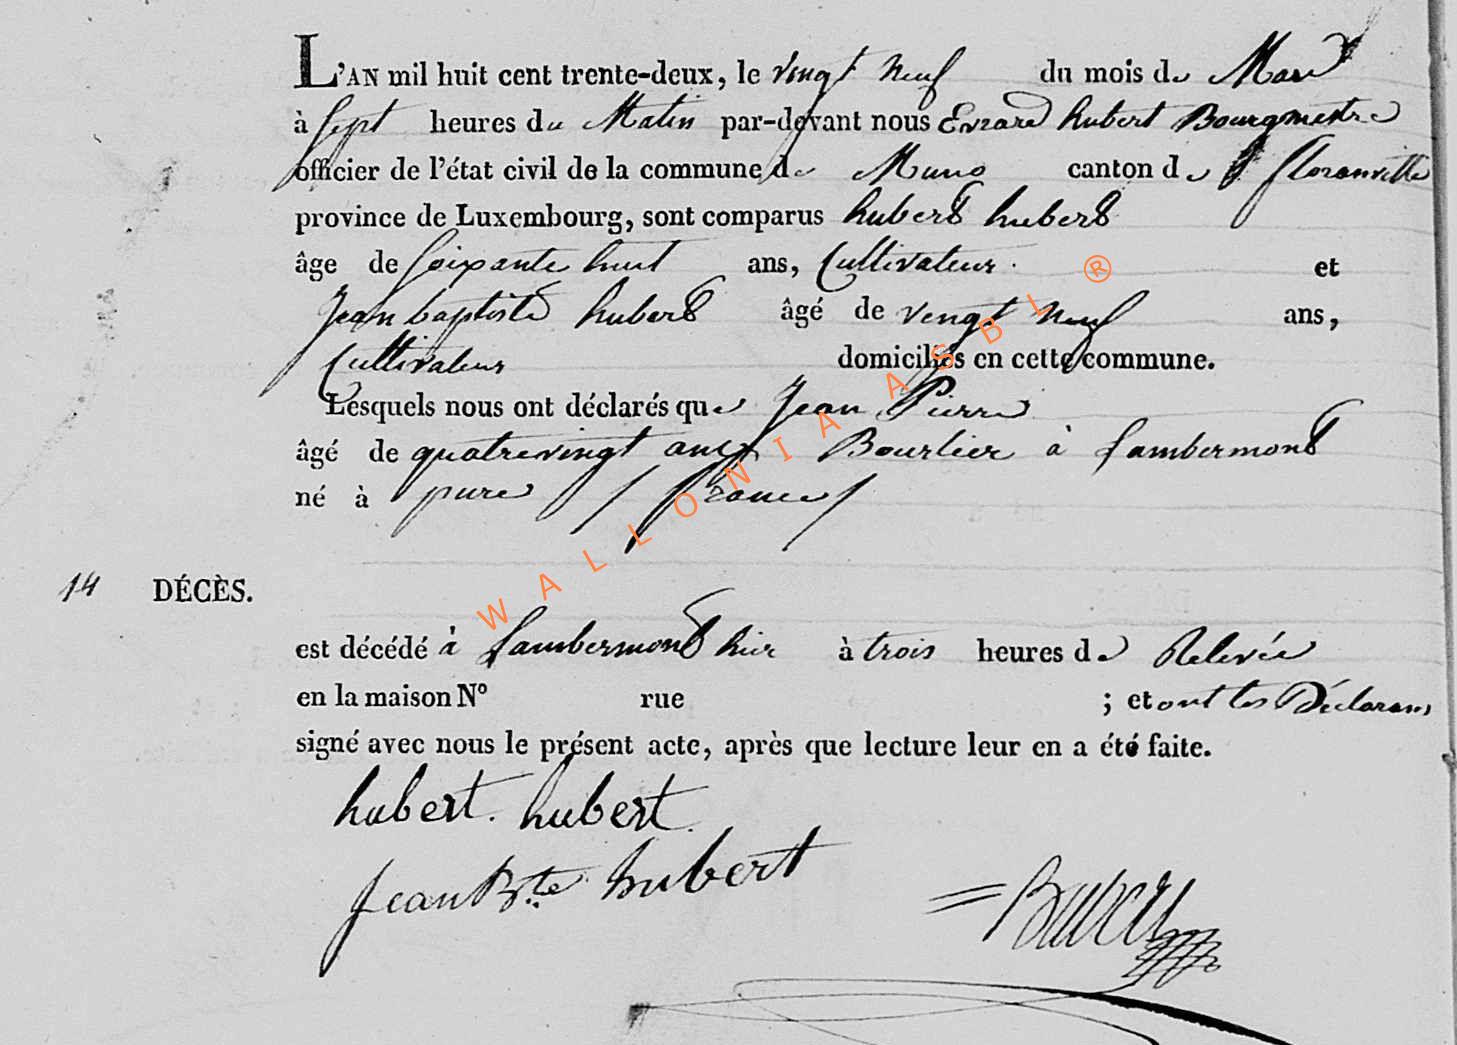 L'AN mil huit cent trente-deux, le vingt neuf du mois de Mars
à sept heures du Matin par-devant nous Evrard hubert Bourgmestre
officier de l'état civil de la commune de Muno canton de floranville
province de Luxembourg, sont comparus hubert hubert
âgé de soixante huit ans, Cultivateur. et
Jean baptiste hubert âgé de vingt neuf ans,
Cultivateur domiciliés en cette commune.
Lesquels nous ont déclarés que Jean Pierre
âgé de quatrevingt ans à Lambermont
né à pure / france /
14 DÉCÈS.
est décédé à Lambermont hier à trois heures de Relevée
en la maison Nº rue ; et ont les Déclarans
signé avec nous le présent acte, après que lecture leur en a été faite.
hubert. hubert.
Jean Bte hubert
WALLONIA ASBL ®